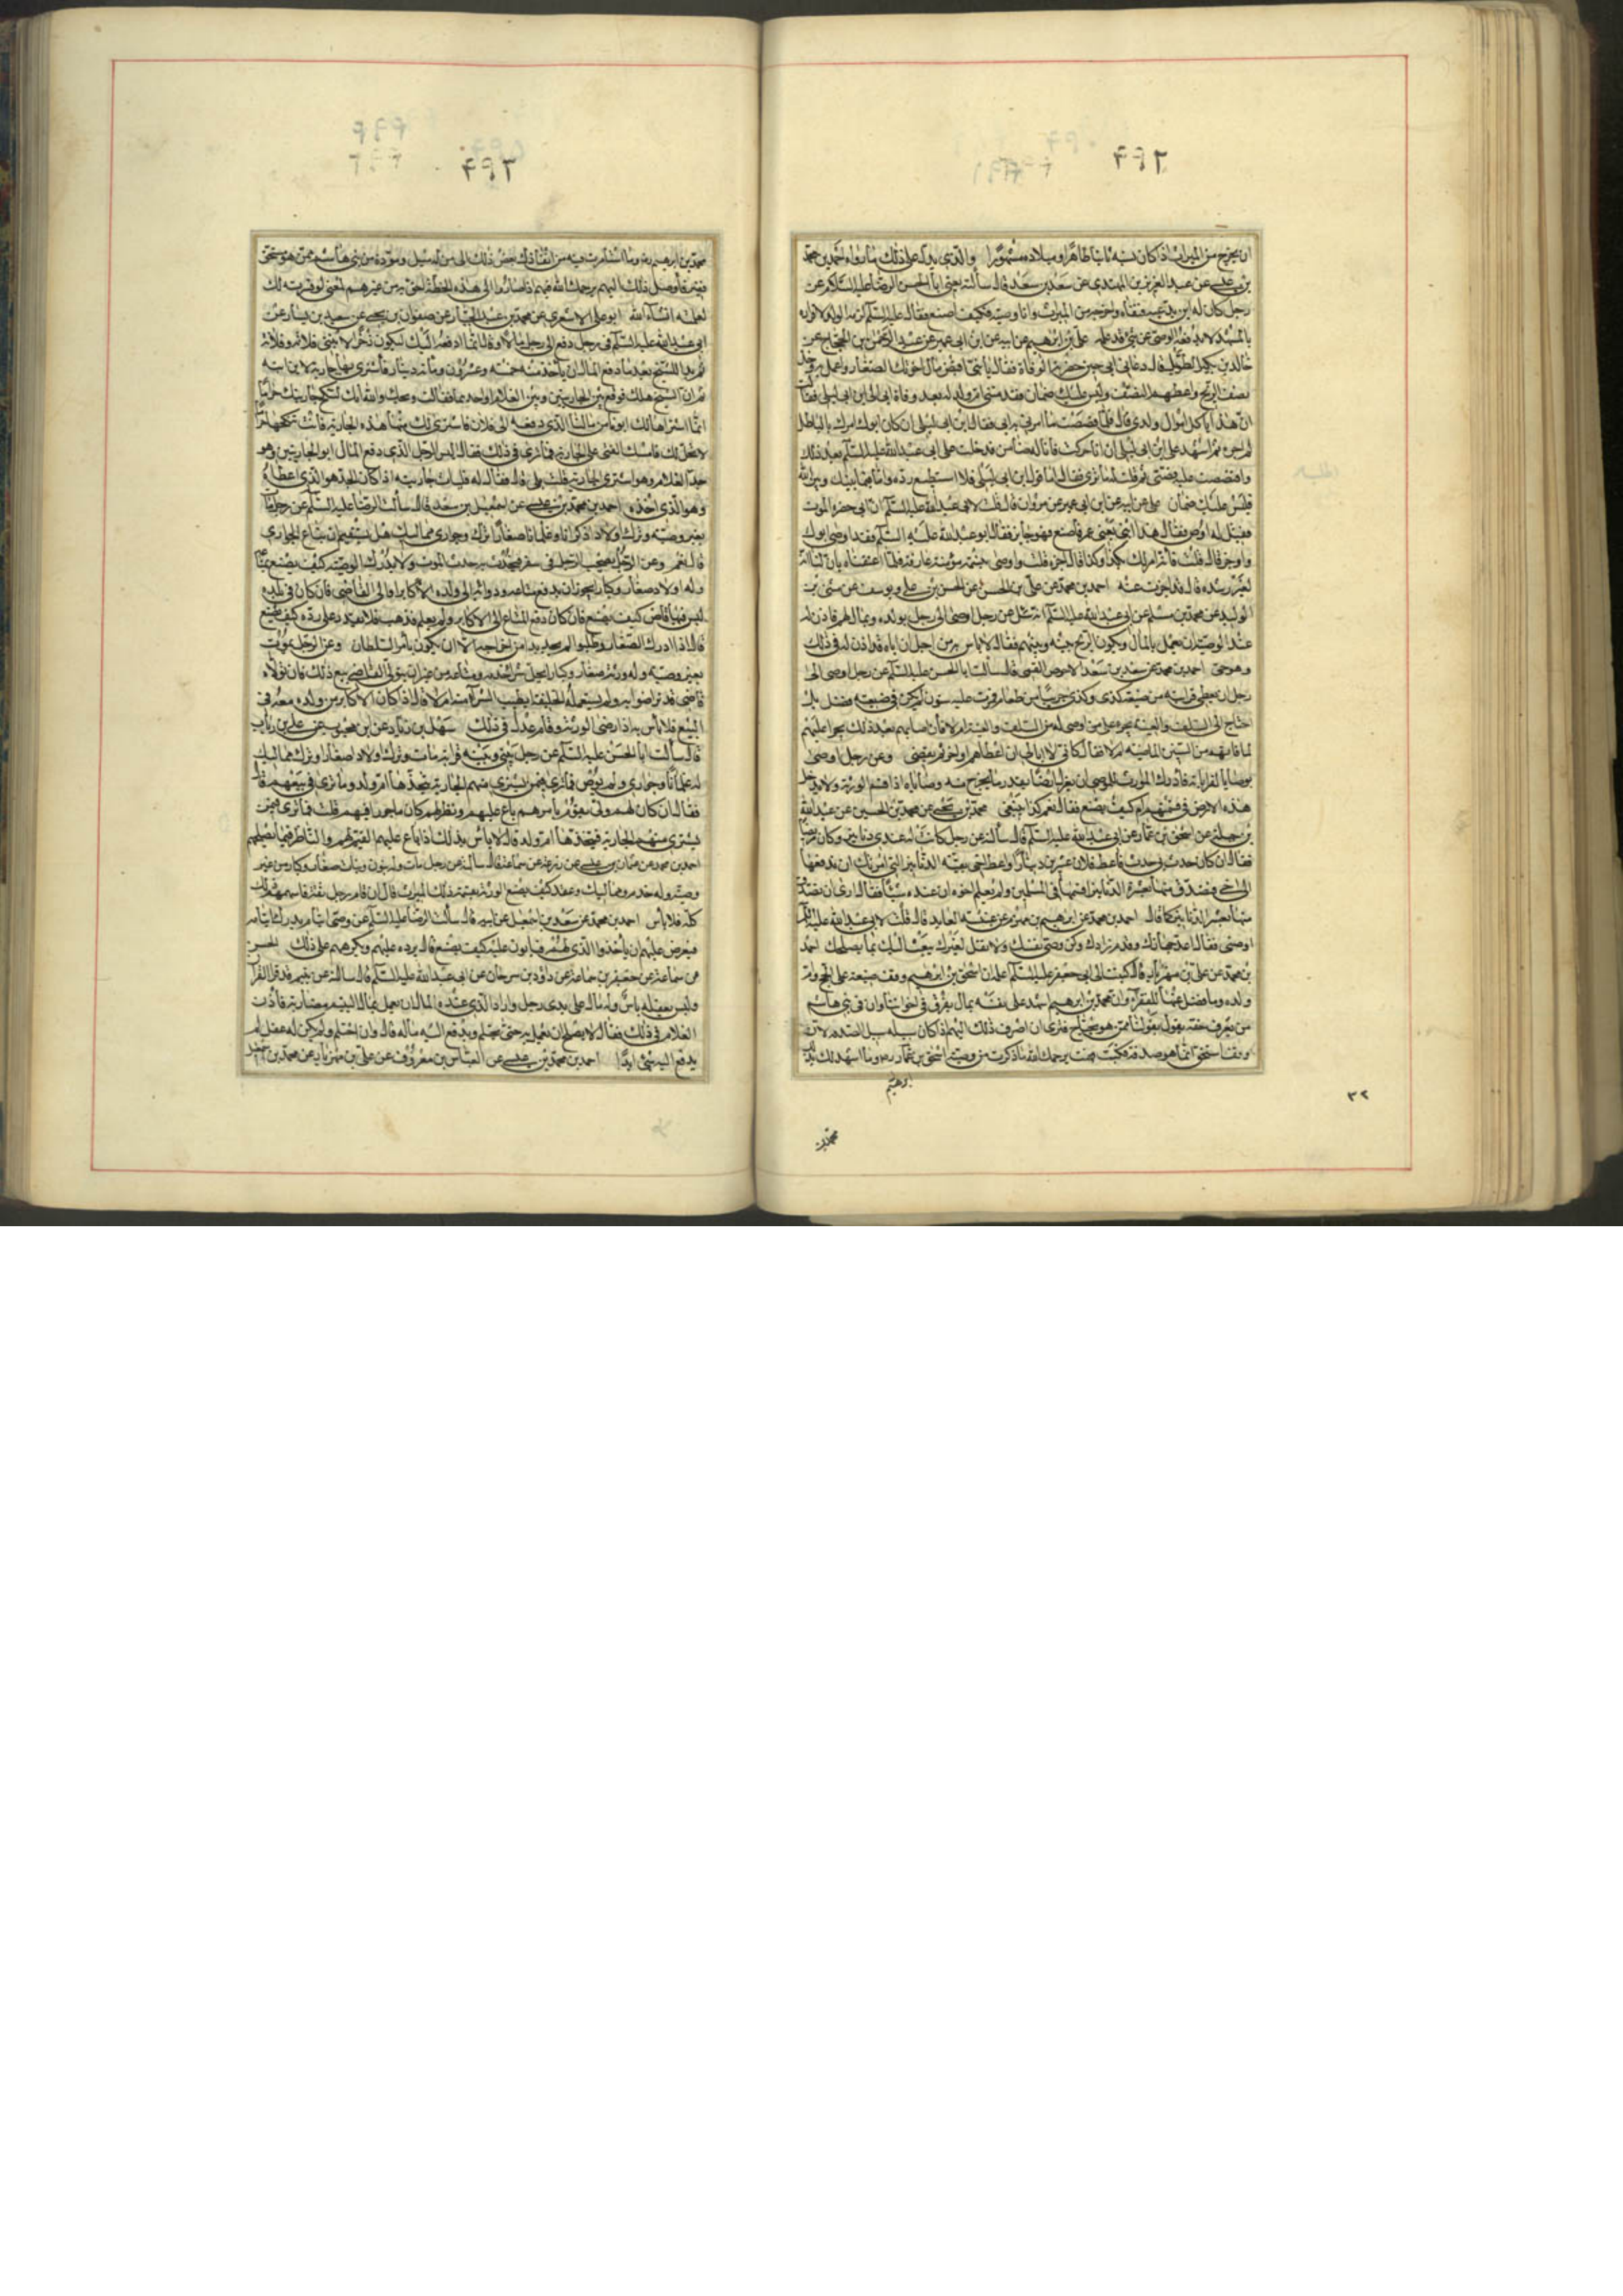 ان يخرج من الميراث اذا كان نسبه ثابتا ظاهرا وميلاده مشهورا والذي يدل على ذلك ما رواه احمد بن محمد
بن عيسى عن عبد العزيز بن المهتدى عن سعد بن سعد قال سألته يعني ابا الحسن الرضا عليه السلام عن
رجل كان له ابن يدعيه فنفاه واخرجه من الميراث وانا وصيه فكيف اصنع فقال عليه السلام لزمه الولد لاقراره
بالمشهد لا يدفعه الوصي عن شئ قد علمه علي بن ابرهيم عن ابيه عن ابن ابي عمير عن عبد الرحمن بن الحجاج عن
خالد بن بكير الطويل قال دعاني ابي حين حضرته الوفاة فقال يا بني اقبض مال اخوتك الصغار واعمل به وخذ
نصف الربح واعطهم النصف وليس عليك ضمان فقدمتني ام ولد له بعد وفاة ابي الى ابن ابي ليلى فقالت
ان هذا يأكل اموال ولدي قال فقصصت ما امرني به ابي فقال ابن ابي ليلى ان كان ابوك امرك بالباطل
لم اجزه ثم اشهد على ابن ابي ليلى ان انا حركته فانا له ضامن فدخلت على ابي عبد الله عليه السلام بعد ذلك
واقتصصت عليه قصتي ثم قلت له ما ترى فقال اما قول ابن ابي ليلى فلا استطيع رده واما فيما بينك وبين الله
فليس عليك ضمان علي عن ابيه عن ابن ابي عمير عن مروان قال قلت لابي عبد الله عليه السلام ان ابي حضره الموت
فقيل له اوص فقال هذا ابني يعني عمر فما صنع فهو جايز فقال ابو عبد الله عليه السلام فقد اوصى ابوك
واوجز قال قلت فانه امر لك بكذا وكذا قال اجزه قلت واوصى بنسمة مؤمنة عارفة فلما اعتقناه بان لنا انه
لغير رشدة قال قد اجزأت عنه احمد بن محمد عن علي بن الحسن عن الحسن بن علي بن يوسف عن مثنى بن
الوليد عن محمد بن مسلم عن ابي عبد الله عليه السلام انه سئل عن رجل اوصى الى رجل بولده وبمال لهم فاذن له
عند الوصية ان يعمل بالمال ويكون الربح بينه وبينهم فقال لا باس به من اجل ان اباه قد اذن له في ذلك
وهو حي احمد بن محمد عن سعد بن سعد الاحوص القمي قال سألت ابا الحسن عليه السلام عن رجل اوصى الى
رجل ان يعطي قرابته من ضيعته كذى وكذى جريبا من طعام فمرت عليه سنون لم يكن في ضيعته فضل بل
احتاج الى السلف والعينة يجري على من اوصى له من السلف والعينة ام لا فان اصابهم بعد ذلك يجر عليهم
لما فاتهم من السنين الماضية ام لا فقال كاني لا ابالي ان اعطاهم او اخر ثم يقضي وعن رجل اوصى
بوصايا لقراباته فادرك الوارث للوصي ان يعزل ارضا بقدر ما يخرج منه وصاياه اذا قسم الورثة ولا يدخل
هذه الارض في قسمتهم ام كيف يصنع فقال نعم كذا ينبغي محمد بن يحيى عن محمد بن الحسين عن عبد الله
بن جبلة عن اسحق بن عمار عن ابي عبد الله عليه السلام قال سألته عن رجل كانت له عندي دنانير وكان مريضا
فقال ان كان حدث بي حدث فاعط فلانا عشرين دينارا واعط اخي بقية الدنانير
اوصني فقال اعد جهازك وقدم زادك وكن وصي نفسك ولا تقل لغيرك يبعث اليك بما يصلحك احمد
بن محمد عن علي بن مهزيار قال كتبت الى ابي جعفر عليه السلام اعلمه ان اسحق بن ابرهيم وقف ضيعة على الحج وام
ولده وما فضل عنها للفقراء وان محمد بن ابرهيم اشهد على نفسه بمال يفرق في اخواننا وان في بني هاشم
من يعرف حقه يقول بقولنا ممن هو محتاج فترى ان اصرف ذلك اليهم اذا كان سبيله سبيل الصدقة لان
وقف اسحق انما هو صدقة فكتب فهمت يرحمك الله ما ذكرت من وصية اسحق بن
ابرهيم
محمد بن
٣٢
محمد بن ابرهيم رضه وما استأمرت فيه من ايصالك بعض ذلك الى من له ميل ومودة من بني هاشم ممن هو مستحق
فقير فاوصل ذلك اليهم يرحمك الله فهم اذا صاروا الى هذه الخطة احق به من غيرهم لمعنى لو فسرته لك
لعلمته انشاء الله ابو علي الاشعري عن محمد بن عبد الجبار عن صفوان بن يحيى عن سعيد بن يسار عن
ابي عبد الله عليه السلام في رجل دفع الى رجل مالا وقال انما ادفعه اليك ليكون ذخرا لابنتي فلانة وفلانة
ثم بدا للشيخ بعد ما دفع المال ان يأخذ منه خمسة وعشرون ومائة دينار فاشترى بها جارية لابن ابنه
ثم ان الشيخ هلك فوقع بين الجاريتين وبين الغلام او احديهما فقالت ويحك والله انك لتنكح جاريتك حراما
انما اشتراها لك ابونا من مالنا الذي دفعه الى فلان فاشترى لك منها هذه الجارية فانت تنكحها حراما
لا تحل لك فامسك الفتى على الجارية فما ترى في ذلك فقال اليس الرجل الذي دفع المال ابو الجاريتين وهو
جد الغلام وهو اشترى الجارية قلت بلى قال فقال له فليأت جاريته اذا كان الجد هو الذي اعطاه
وهو الذي اخذه احمد بن محمد بن عيسى عن اسمعيل بن سعد قال سألت الرضا عليه السلام عن رجل مات
بغير وصية وترك اولادا ذكرانا وغلمانا صغارا وترك جواري ومماليك هل يستقيم ان تباع الجواري
قال نعم وعن الرجل يصحب الرجل في سفر فيحدث به حدث الموت ولا يدرك الوصية كيف يصنع بمتاعه
وله اولاد صغار وكبار ايجوز ان يدفع متاعه ودوابه الى ولده الاكابر او الى القاضي فان كان في بلده
ليس فيها قاض كيف يصنع فان كان دفع المتاع الى الاكابر ولم يعلم فذهب فلا يقدر على رده كيف يصنع
قال اذا ادرك الصغار وطلبوا لم يجد بدا من اخراجه الا ان يكون بأمر السلطان وعن الرجل يموت
بغير وصية وله ورثة صغار وكبار ايحل شراء خدمه ومتاعه من غير ان يتولى القاضي بيع ذلك فان تولاه
قاض قد تراضوا به ولم يستعمله الخليفة ايطيب الشراء منه ام لا قال اذا كان الاكابر من ولده معه في
البيع فلا بأس به اذا رضي الورثة وقام عدل في ذلك سهل بن زياد عن ابن محبوب عن علي بن رئاب
قال سألت ابا الحسن عليه السلام عن رجل بيني وبينه قرابة مات وترك اولادا صغارا وترك مماليك
له غلمانا وجواري ولم يوص فما ترى فيمن يشتري منهم الجارية يتخذها ام ولد وما ترى في بيعهم قال
فقال ان كان لهم ولي يقوم بامرهم باع عليهم ونظر لهم كان ماجورا فيهم قلت فما ترى فيمن
يشتري منهم الجارية فيتخذها ام ولد قال لا بأس بذلك اذا باع عليهم القيم لهم والناظر فيما يصلحهم
احمد بن محمد عن عثمان بن عيسى عن زرعة عن سماعة قال سألته عن رجل مات وله بنون وبنات صغار وكبار من غير
وصية وله خدم ومماليك وعقد كيف يصنع الورثة بقسمة ذلك الميراث قال ان قام رجل ثقة قاسمهم ذلك
كله فلا بأس احمد بن محمد عن سعد بن اسمعيل عن ابيه قال سألت الرضا عليه السلام عن وصي ايتام يدرك ايتامه
فيعرض عليهم ان يأخذوا الذي لهم فيأبون عليه كيف يصنع قال يرده عليهم ويكرههم على ذلك الحسن
بن سماعة عن جعفر بن سماعة عن داود بن سرحان عن ابي عبد الله عليه السلام قال سألته عن يتيم قد قرأ القرآن
وليس بعقله بأس وله مال على يدي رجل واراد الذي عنده المال ان يعمل بمال اليتيم مضاربة فاذن
الغلام في ذلك فقال لا يصلح ان يعمل به حتى يحتلم ويدفع اليه ماله قال وان احتلم ولم يكن له عقل لم
يدفع اليه شئ ابدا احمد بن محمد بن عيسى عن العباس بن معروف عن علي بن مهزيار عن محمد بن